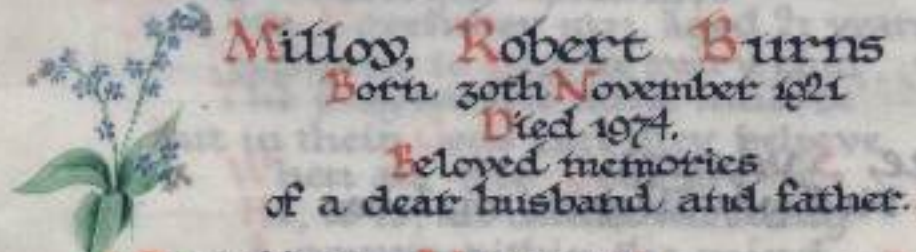 Milloy, Robert Burns
Born 30th November 1921
Died 1974.
Beloved memories
of a dear husband and father.